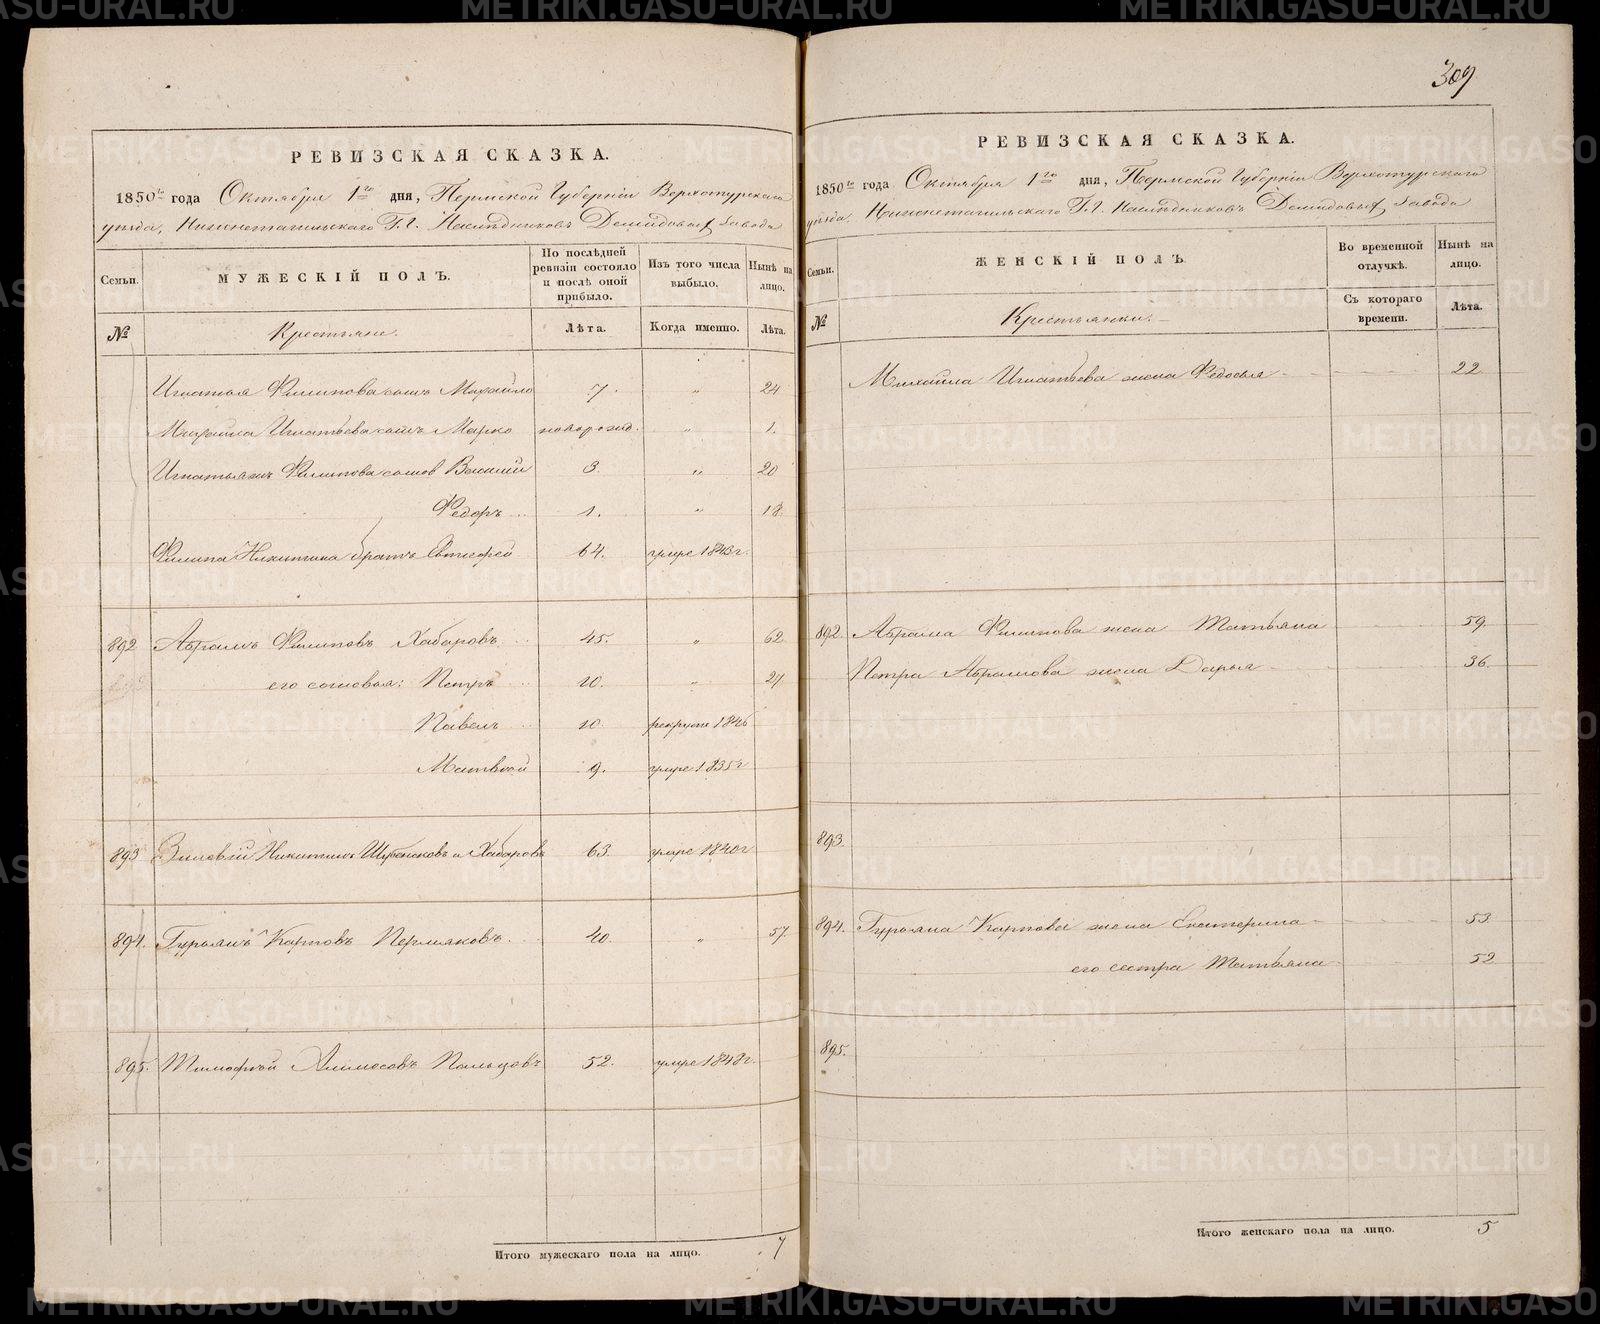 РЕВИЗСКАЯ СКАЗКА.
1850го года Октября 1го дня, Пермской Губернiи Верхотурскаго
уѣзда, Нижнетагильскаго Г.г. Наслѣдниковъ Демидовых завода
Семьи.
МУЖЕСКІЙ ПОЛЪ.
По послѣдней ревизіи состояло и послѣ оной прибыло.
Изъ того числа выбыло.
Нынѣ на лицо.
№
Крестьяне.
Лѣта.
Когда именно.
Лѣта.
Игнатья Филипова сынъ Михайло 7. " 24
Михайла Игнатьева сынъ Марко новорожд. " 1.
Игнатья Филипова сынов Василий 3. " 20
Федоръ 1. " 18
Филипа Никитина братъ 64. умре 1843г.
892 Абрамъ Филиповъ Хабаровъ 45. " 62
его сыновья: Петръ 20. "
Павелъ 20 рекрутъ 1846
Матвѣй 9. умре 1835г
893 Зиновій Никитинъ и Хабаровъ 63. умре 1840г
894. Гурьянъ Карповъ Пермяковъ 40. " 57.
895. Тимофѣй Пальцовъ 52. умре 1848г.
Итого мужескаго пола на лицо. 7
309
РЕВИЗСКАЯ СКАЗКА.
1850го года Октября 1го дня, Пермской Губернiи Верхотурскаго
уѣзда, Нижнетагильскаго Г.г. Наслѣдниковъ Демидовых завода
Семьи.
ЖЕНСКІЙ ПОЛЪ.
Во временной отлучкѣ.
Нынѣ на лицо.
№
Крестьянки.
Съ котораго времени.
Лѣта.
Михайла Игнатьева жена Федосья 22
892. Абрама Филипова жена Татьяна 59.
Петра Абрамова жена Дарья 36
893.
894. Гурьяна Карпова жена Екатерина 53
его сестра Татьяна 52
895.
Итого женскаго пола на лицо. 5
METRIKI.GASO-URAL.RU